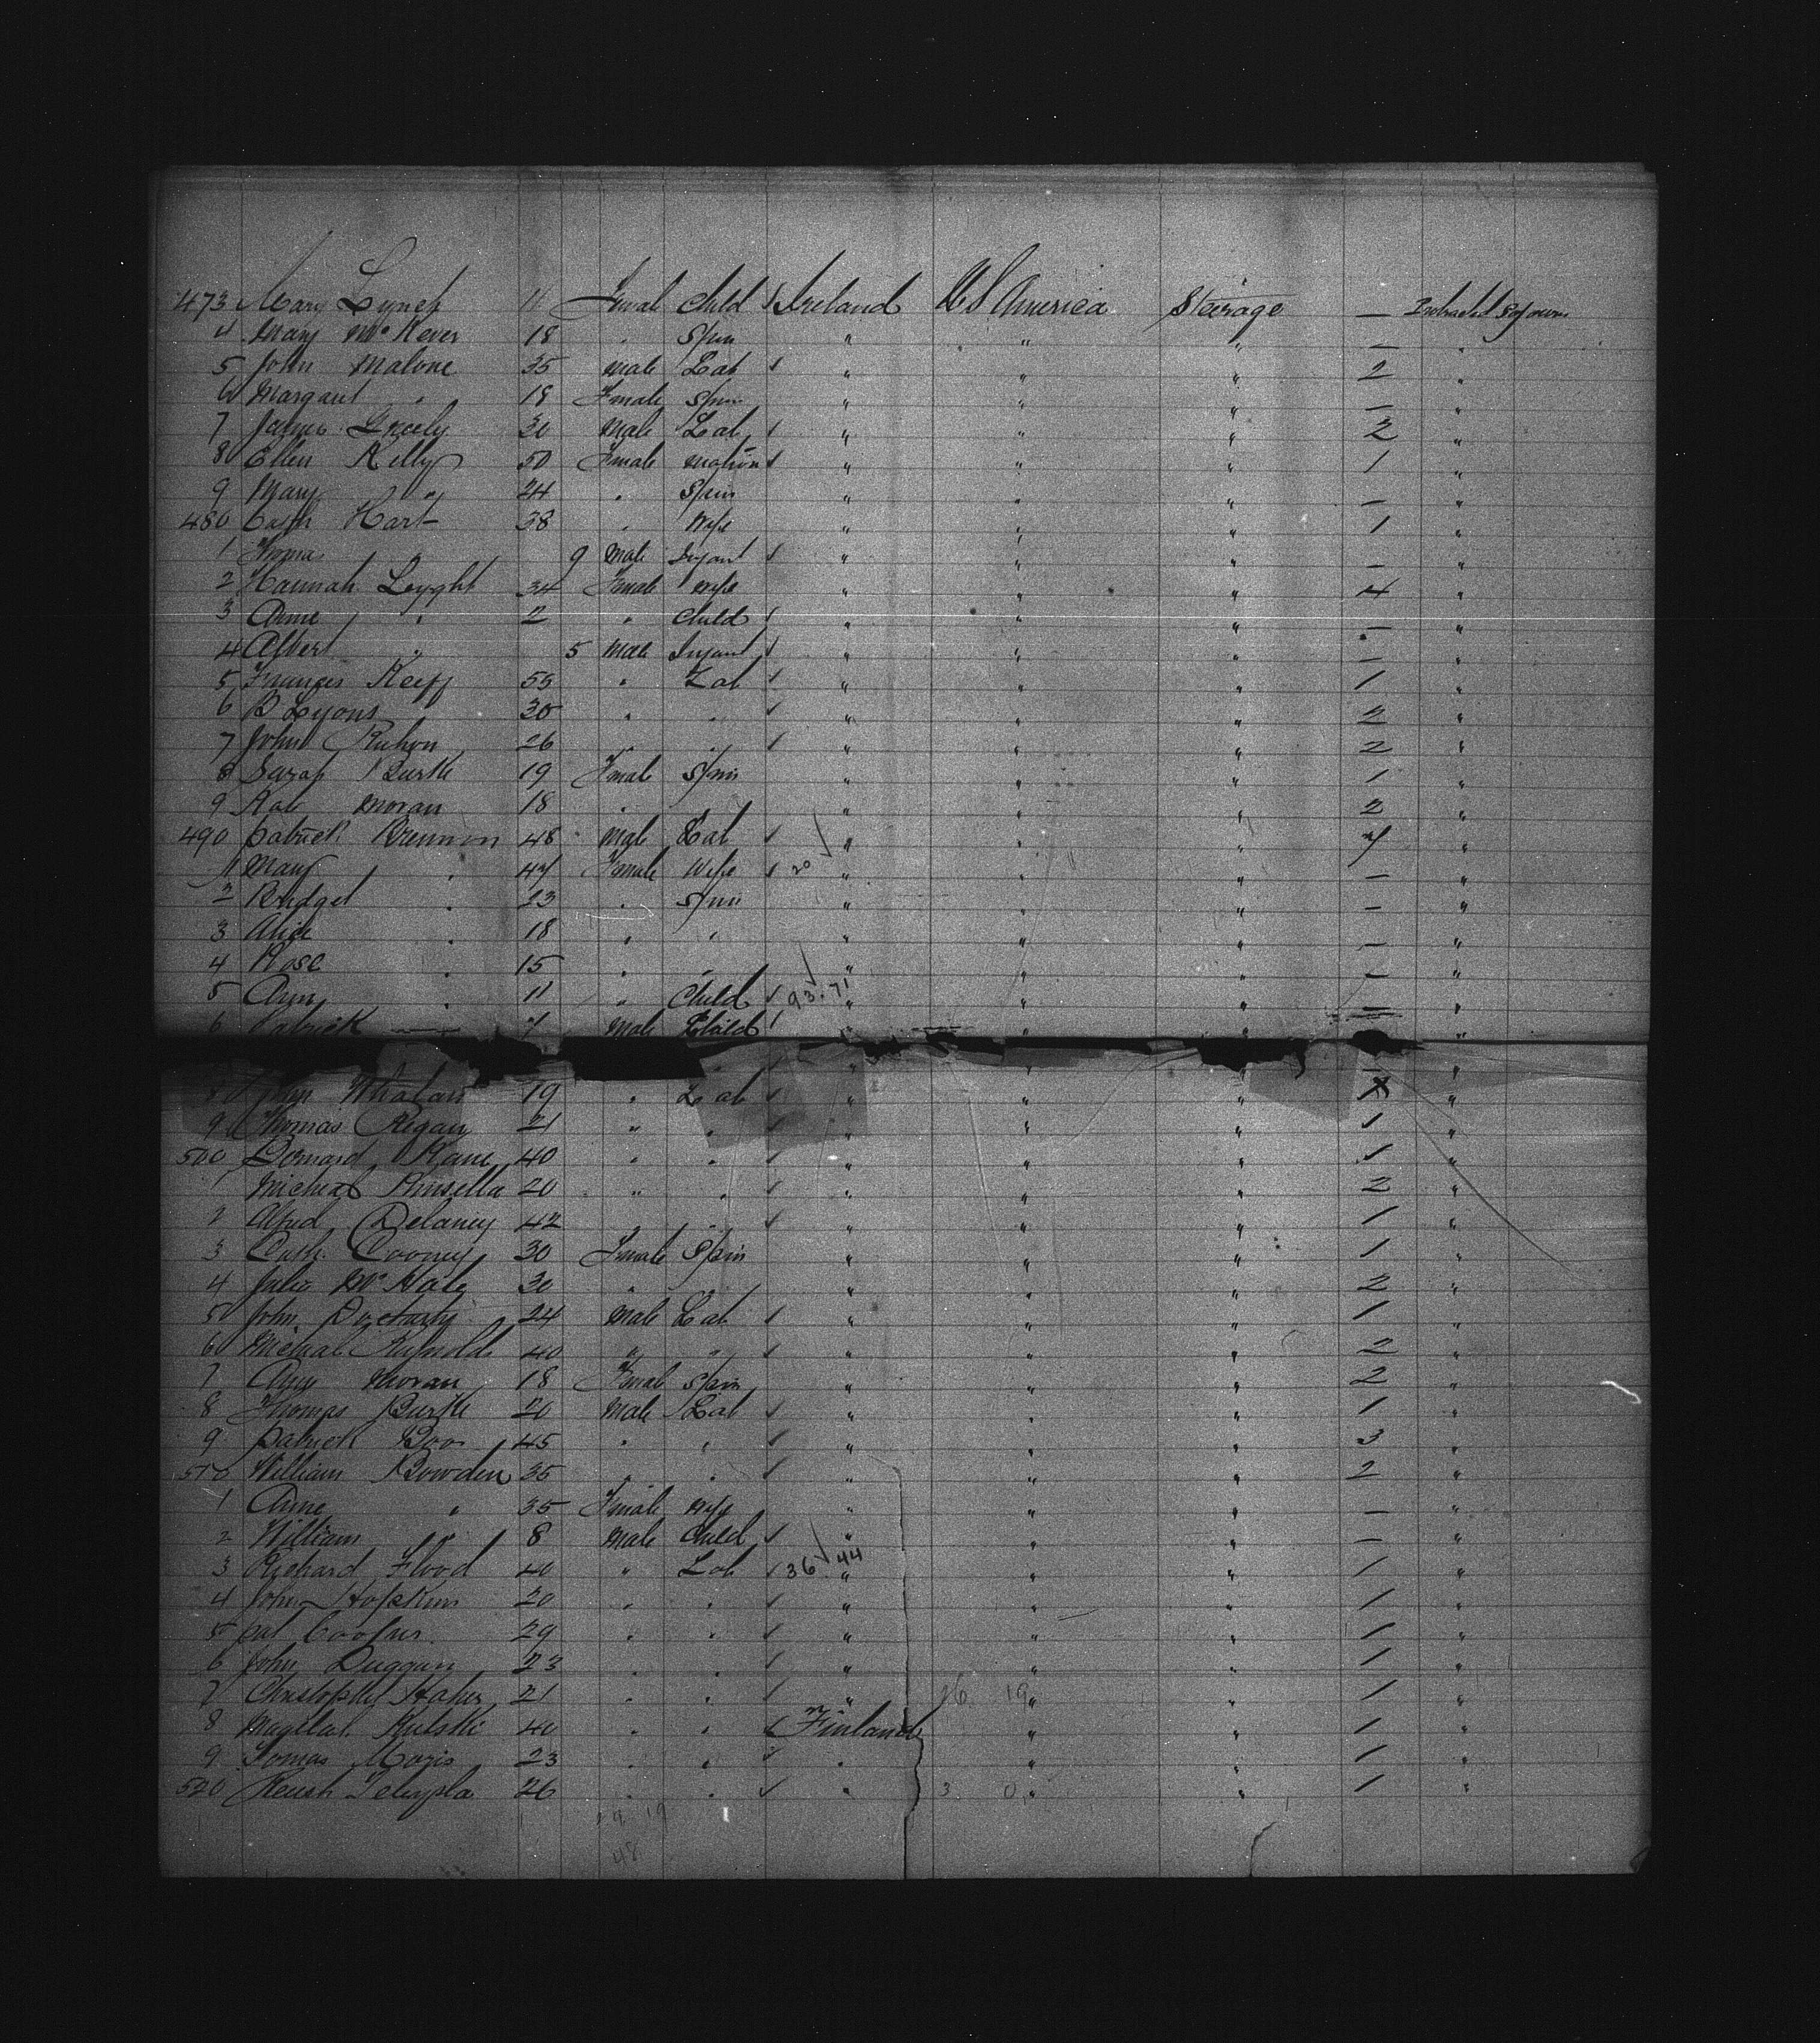 473 Mary Lynch 11 Female Child Ireland U S America Steerage — Protracted Sojourn
4 Mary McKever 18 " Spin " " " — "
5 John Malone 35 Male Lab " " " 2 "
6 Margaret " 18 Female Spin " " " — "
7 James 30 Male Lab " " " "
8 Ellen Kelly 50 Female Matron " " " 1 "
9 Mary " 24 " Spin " " " — "
480 Cath Hart 38 " Wife " " " 1 "
1 Thomas 9 Male Infant " " " — "
2 Hannah Leyght 34 Female Wife " " " 4 "
3 Anne " 2 " Child " " " — "
4 Albert " 5 Male Infant " " " — "
5 Keeff 55 " Lab " " " 1 "
6 P Lyons 30 " " " " " 2 "
7 John 26 " " " " " 2 "
8 Sarah Burke 19 Female Spin " " " 1 "
9 Kate Moran 18 " " " " 2 "
490 Patrick Brennon 48 Male Lab " " " 7 "
1 Mary " 47 Female Wife 20 " " " — "
2 Bridget " 23 " Spin " " " — "
3 Alice " 18 " " " " " — "
4 Rose " 15 " " " " — "
5 Ann " 11 " Child 93.71 " " " — "
6 Patrick 7 Male Child " " "
8 John Whalan 19 " Lab " " " "
9 Thomas Regan 21 " " " " " 1 "
500 Bernard Kane 40 " " " " " 1 "
1 Michael Kinsella 20 " " " " " 2 "
2 Alfred Delaney 42 " " " 1 "
3 Cath Cooney 30 Female Spin " " " 1 "
4 Julia McHale 30 " " " " " 2 "
5 John Docharty 24 Male Lab " " " 1 "
6 Micheal Reynolds 40 " " " " " 2 "
7 Ann Moran 18 Female Spin " " " 2 "
8 Thomas Burke 20 Male Lab " " " 1 "
9 Patrick 45 " " " " " 3 "
510 William Bowden 35 " " " " " 2 "
1 Anne " 35 Female Wife " " " — "
2 William " 8 Male Child " " " — "
3 Richard Flood 40 " Lab 36.44 " " " 1 "
4 John Hopkins 20 " " " " " 1 "
5 Pat 29 " " " " " 1 "
6 John Duggan 23 " " " " " 1 "
7 21 " " " 16 19 " " 1 "
8 40 " " Finland " " 1 "
9 Tomas 23 " " " " " 1 "
520 26 " " " 3 0 " " 1 "
29 19
48